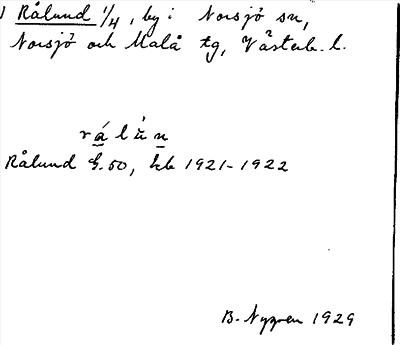 ) Rålund 1/4, by i Norsjö sn,
Norsjö och Malå tg, Västerb. l.
Rålund G. 50, kb 1921-1922
B. Nygren 1929